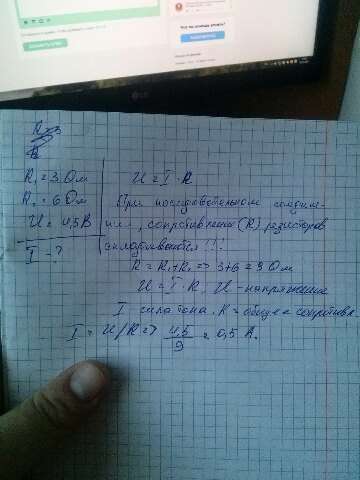 R₁ = 3 Ом
R₂ = 6 Ом
U = 4,5 В
I - ?
U = I · R
При последовательном соедине-
нии, сопротивления (R) резисторов
складываются!!!
R = R₁ + R₂ => 3+6 = 9 Ом
U = I · R, U - напряжение
I сила тока. R = общее сопротивл.
I = U/R => 4,5/9 = 0,5 А.